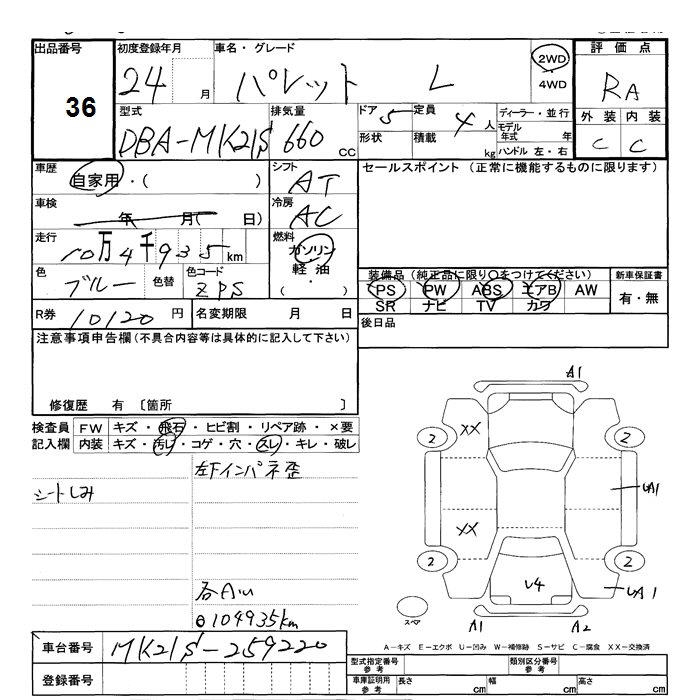 出品番号 初度登録年月 車名・グレード 評価点
36
24 月 パレット L 2WD 4WD
RA
型式 排気量 ドア 定員 ディーラー・並行
DBA-MK21S 660 cc 5 4 人 モデル年式 年
形状 積載 kg ハンドル 左・右
外装 内装
C C
車歴 自家用・( ) シフト AT
セールスポイント (正常に機能するものに限ります)
車検 年 月( 日) 冷房 AC
走行 10万4千935km 燃料 ガソリン 軽油 ・( )
色 ブルー 色替 色コード ZPS
装備品(純正品に限り○をつけてください) 新車保証書
PS PW ABS エアB AW 有・無
SR ナビ TV カワ
R券 10120 円 名変期限 月 日 後日品
注意事項申告欄(不具合内容等は具体的に記入して下さい)
修復歴 有 〔箇所 〕
検査員 FW キズ・飛石・ヒビ割・リペア跡・×要
記入欄 内装 キズ・汚レ・コゲ・穴・スレ・キレ・破レ
左下インパネ歪
シートしみ
各A
104935km
A1
2 XX 2
UA1
XX
2 2
U4 UA1
スペア
A1 A2
A-キズ E-エクボ U-凹み W-補修跡 S-サビ C-腐食 XX-交換済
車台番号 MK21S-259220
登録番号
型式指定番号 参考 類別区分番号 参考
車庫証明用 参考 長さ cm 幅 cm 高さ cm